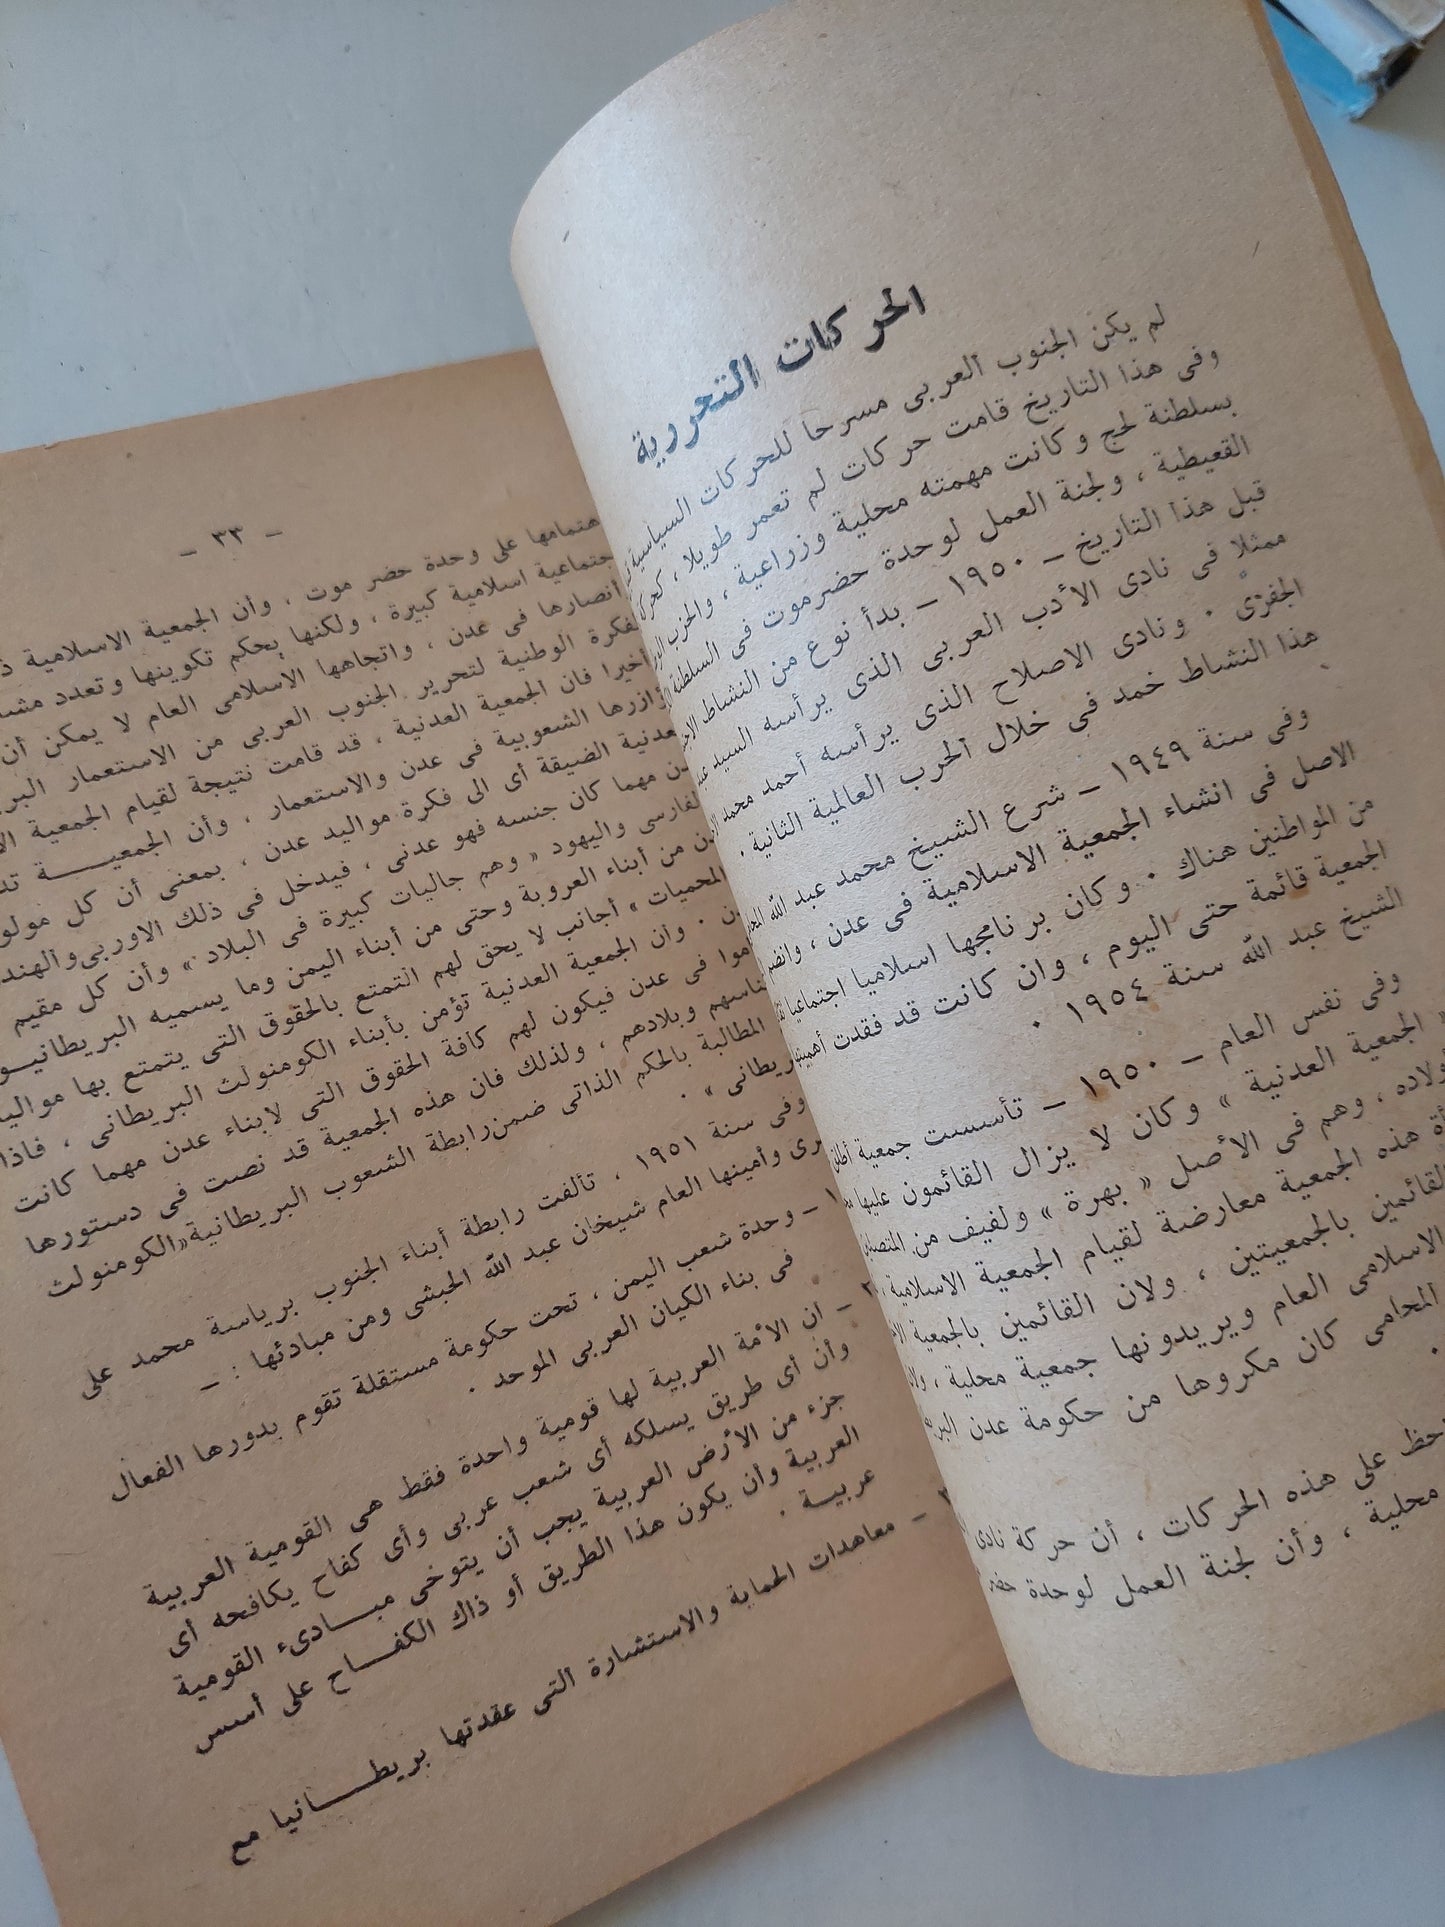 الحركات التحررية
لم يكن الجنوب العربى مسرحا للحركات السياسية
وفى هذا التاريخ قامت حركات لم تعمر طويلا ،
بسلطنة لحج وكانت مهمته محلية وزراعية ، والحزب
القعيطية ، ولجنة العمل لوحدة حضرموت فى السلطنة
قبل هذا التاريخ – ١٩٥٠ – بدأ نوع من النشاط
ممثلا فى نادى الأدب العربى الذى يرأسه السيد
الجفرى . ونادى الاصلاح الذى يرأسه أحمد محمد
هذا النشاط خمد فى خلال الحرب العالمية الثانية .
وفى سنة ١٩٤٩ – شرع الشيخ محمد عبد الله
الاصل فى انشاء الجمعية الاسلامية فى عدن ، وانضم
من المواطنين هناك . وكان برنامجها اسلاميا اجتماعيا
الجمعية قائمة حتى اليوم ، وان كانت قد فقدت
الشيخ عبد الله سنة ١٩٥٤ .
وفى نفس العام – ١٩٥٠ – تأسست جمعية
« الجمعية العدنية » وكان لا يزال القائمون عليها
ولاده ، وهم فى الأصل « بهرة » ولفيف من
أة هذه الجمعية معارضة لقيام الجمعية الاسلامية
لقائمين بالجمعيتين ، ولان القائمين بالجمعية
الاسلامى العام ويريدونها جمعية محلية ،
المحامى كان مكروها من حكومة عدن
.
حظ على هذه الحركات ، أن حركة نادى
محلية ، وأن لجنة العمل لوحدة
– ٣٣ –
هتمامها على وحدة حضر موت ، وأن الجمعية الاسلامية
جتماعية اسلامية كبيرة ، ولكنها بحكم تكوينها وتعدد
أنصارها فى عدن ، واتجاهها الاسلامى العام لا يمكن أن
لفكرة الوطنية لتحرير الجنوب العربى من الاستعمار
أخيرا فان الجمعية العدنية ، قد قامت نتيجة لقيام الجمعية
ؤازرها الشعوبية فى عدن والاستعمار ، وأن الجمعية
عدنية الضيقة أى الى فكرة مواليد عدن ، بمعنى أن كل
دن مهما كان جنسه فهو عدنى ، فيدخل فى ذلك الاوربى والهند
لفارسى واليهود « وهم جاليات كبيرة فى البلاد » وأن كل مقيم
دن من أبناء العروبة وحتى من أبناء اليمن وما يسميه
المحميات » أجانب لا يحق لهم التمتع بالحقوق التى يتمتع بها
دن . وأن الجمعية العدنية تؤمن بأبناء الكومنولث البريطانى ، فاذا
اموا فى عدن فيكون لهم كافة الحقوق التى لابناء عدن مهما كانت
ناسهم وبلادهم ، ولذلك فان هذه الجمعية قد نصت فى دستورها
المطالبة بالحكم الذاتى ضمن رابطة الشعوب البريطانية «الكومنولث
ريطانى » .
وفى سنة ١٩٥١ ، تألفت رابطة أبناء الجنوب برياسة محمد على
فرى وأمينها العام شيخان عبد الله الحبشى ومن مبادئها : –
١ – وحدة شعب اليمن ، تحت حكومة مستقلة تقوم بدورها الفعال
فى بناء الكيان العربى الموحد .
٢ – ان الأمة العربية لها قومية واحدة فقط هى القومية العربية
وأن أى طريق يسلكه أى شعب عربى وأى كفاح يكافحه أى
جزء من الأرض العربية يجب أن يتوخى مبادىء القومية
العربية وأن يكون هذا الطريق أو ذاك الكفاح على أسس
عربية .
– معاهدات الحماية والاستشارة التى عقدتها بريطانيا مع